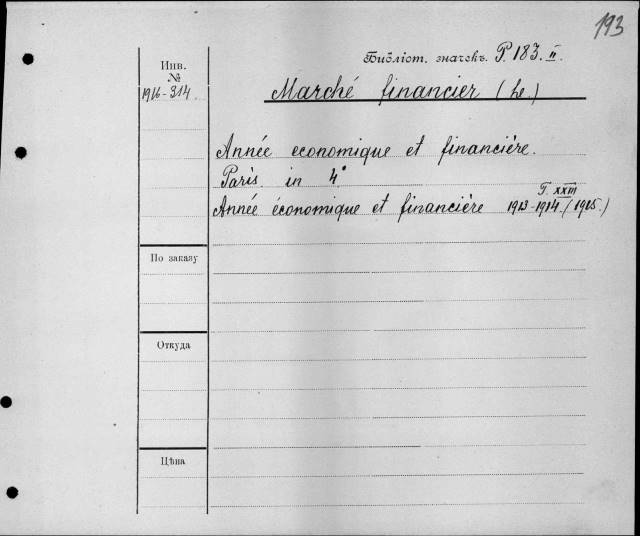 193
Библіот. значекъ. P. 183. II.
Инв.
№
1916-314.
Marché financier (Le.)
Année economique et financière.
Paris. in 4°
T. XXIII
Année économique et financière 1913-1914. (1915.)
По заказу
Откуда
Цѣна